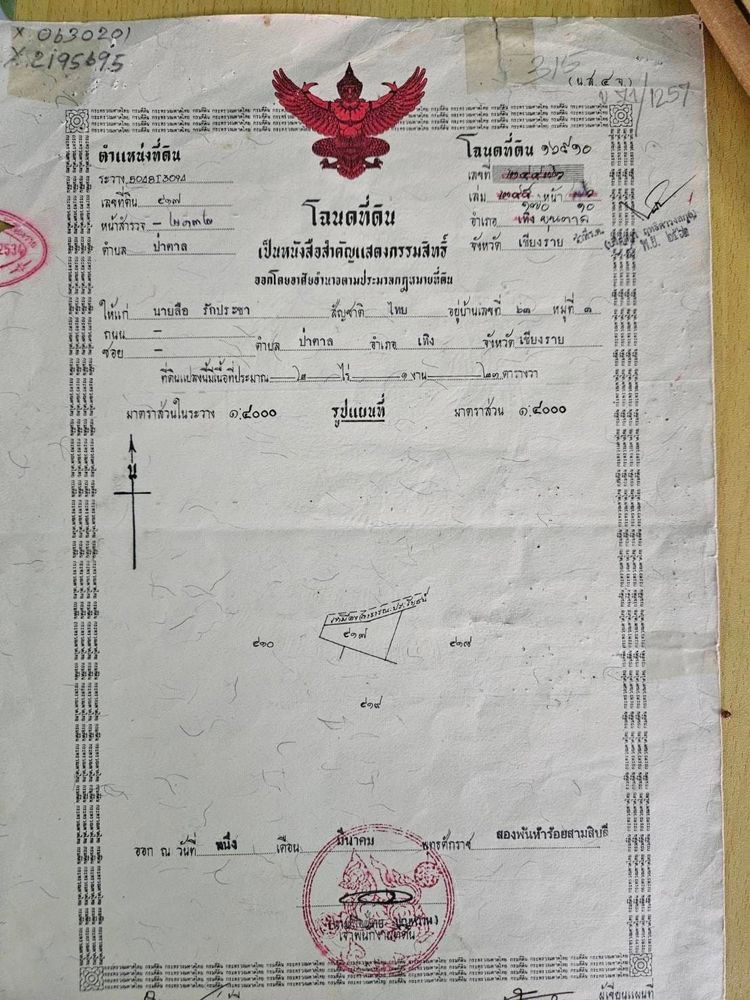 X 0630201
X 2195695
315
(น.ส. ๔ จ.)
ตำแหน่งที่ดิน
ระวาง 5048I3094
เลขที่ดิน ๔๑๗
หน้าสำรวจ – ๒๑๓๒
ตำบล ป่าตาล
โฉนดที่ดิน ๑๖๕๑๐
เลขที่
เล่ม ๑๗๐ หน้า ๑๐
อำเภอ เทิง ขุนตาล
จังหวัด เชียงราย
โฉนดที่ดิน
เป็นหนังสือสำคัญแสดงกรรมสิทธิ์
ออกโดยอาศัยอำนาจตามประมวลกฎหมายที่ดิน
ให้แก่ นายลือ รักประชา สัญชาติ ไทย อยู่บ้านเลขที่ ๒๓ หมู่ที่ ๓
ถนน –
ซอย – ตำบล ป่าตาล อำเภอ เทิง จังหวัด เชียงราย
ที่ดินแปลงนี้มีเนื้อที่ประมาณ ๒ ไร่ ๑ งาน ๒๓ ตารางวา
มาตราส่วนในระวาง ๑:๔๐๐๐ รูปแผนที่ มาตราส่วน ๑:๔๐๐๐
น
๔๑๗
๔๑๐
๔๑๙
ออก ณ วันที่ หนึ่ง เดือน มีนาคม พุทธศักราช สองพันห้าร้อยสามสิบสี่
เจ้าพนักงานที่ดิน
ผู้เขียนแผนที่